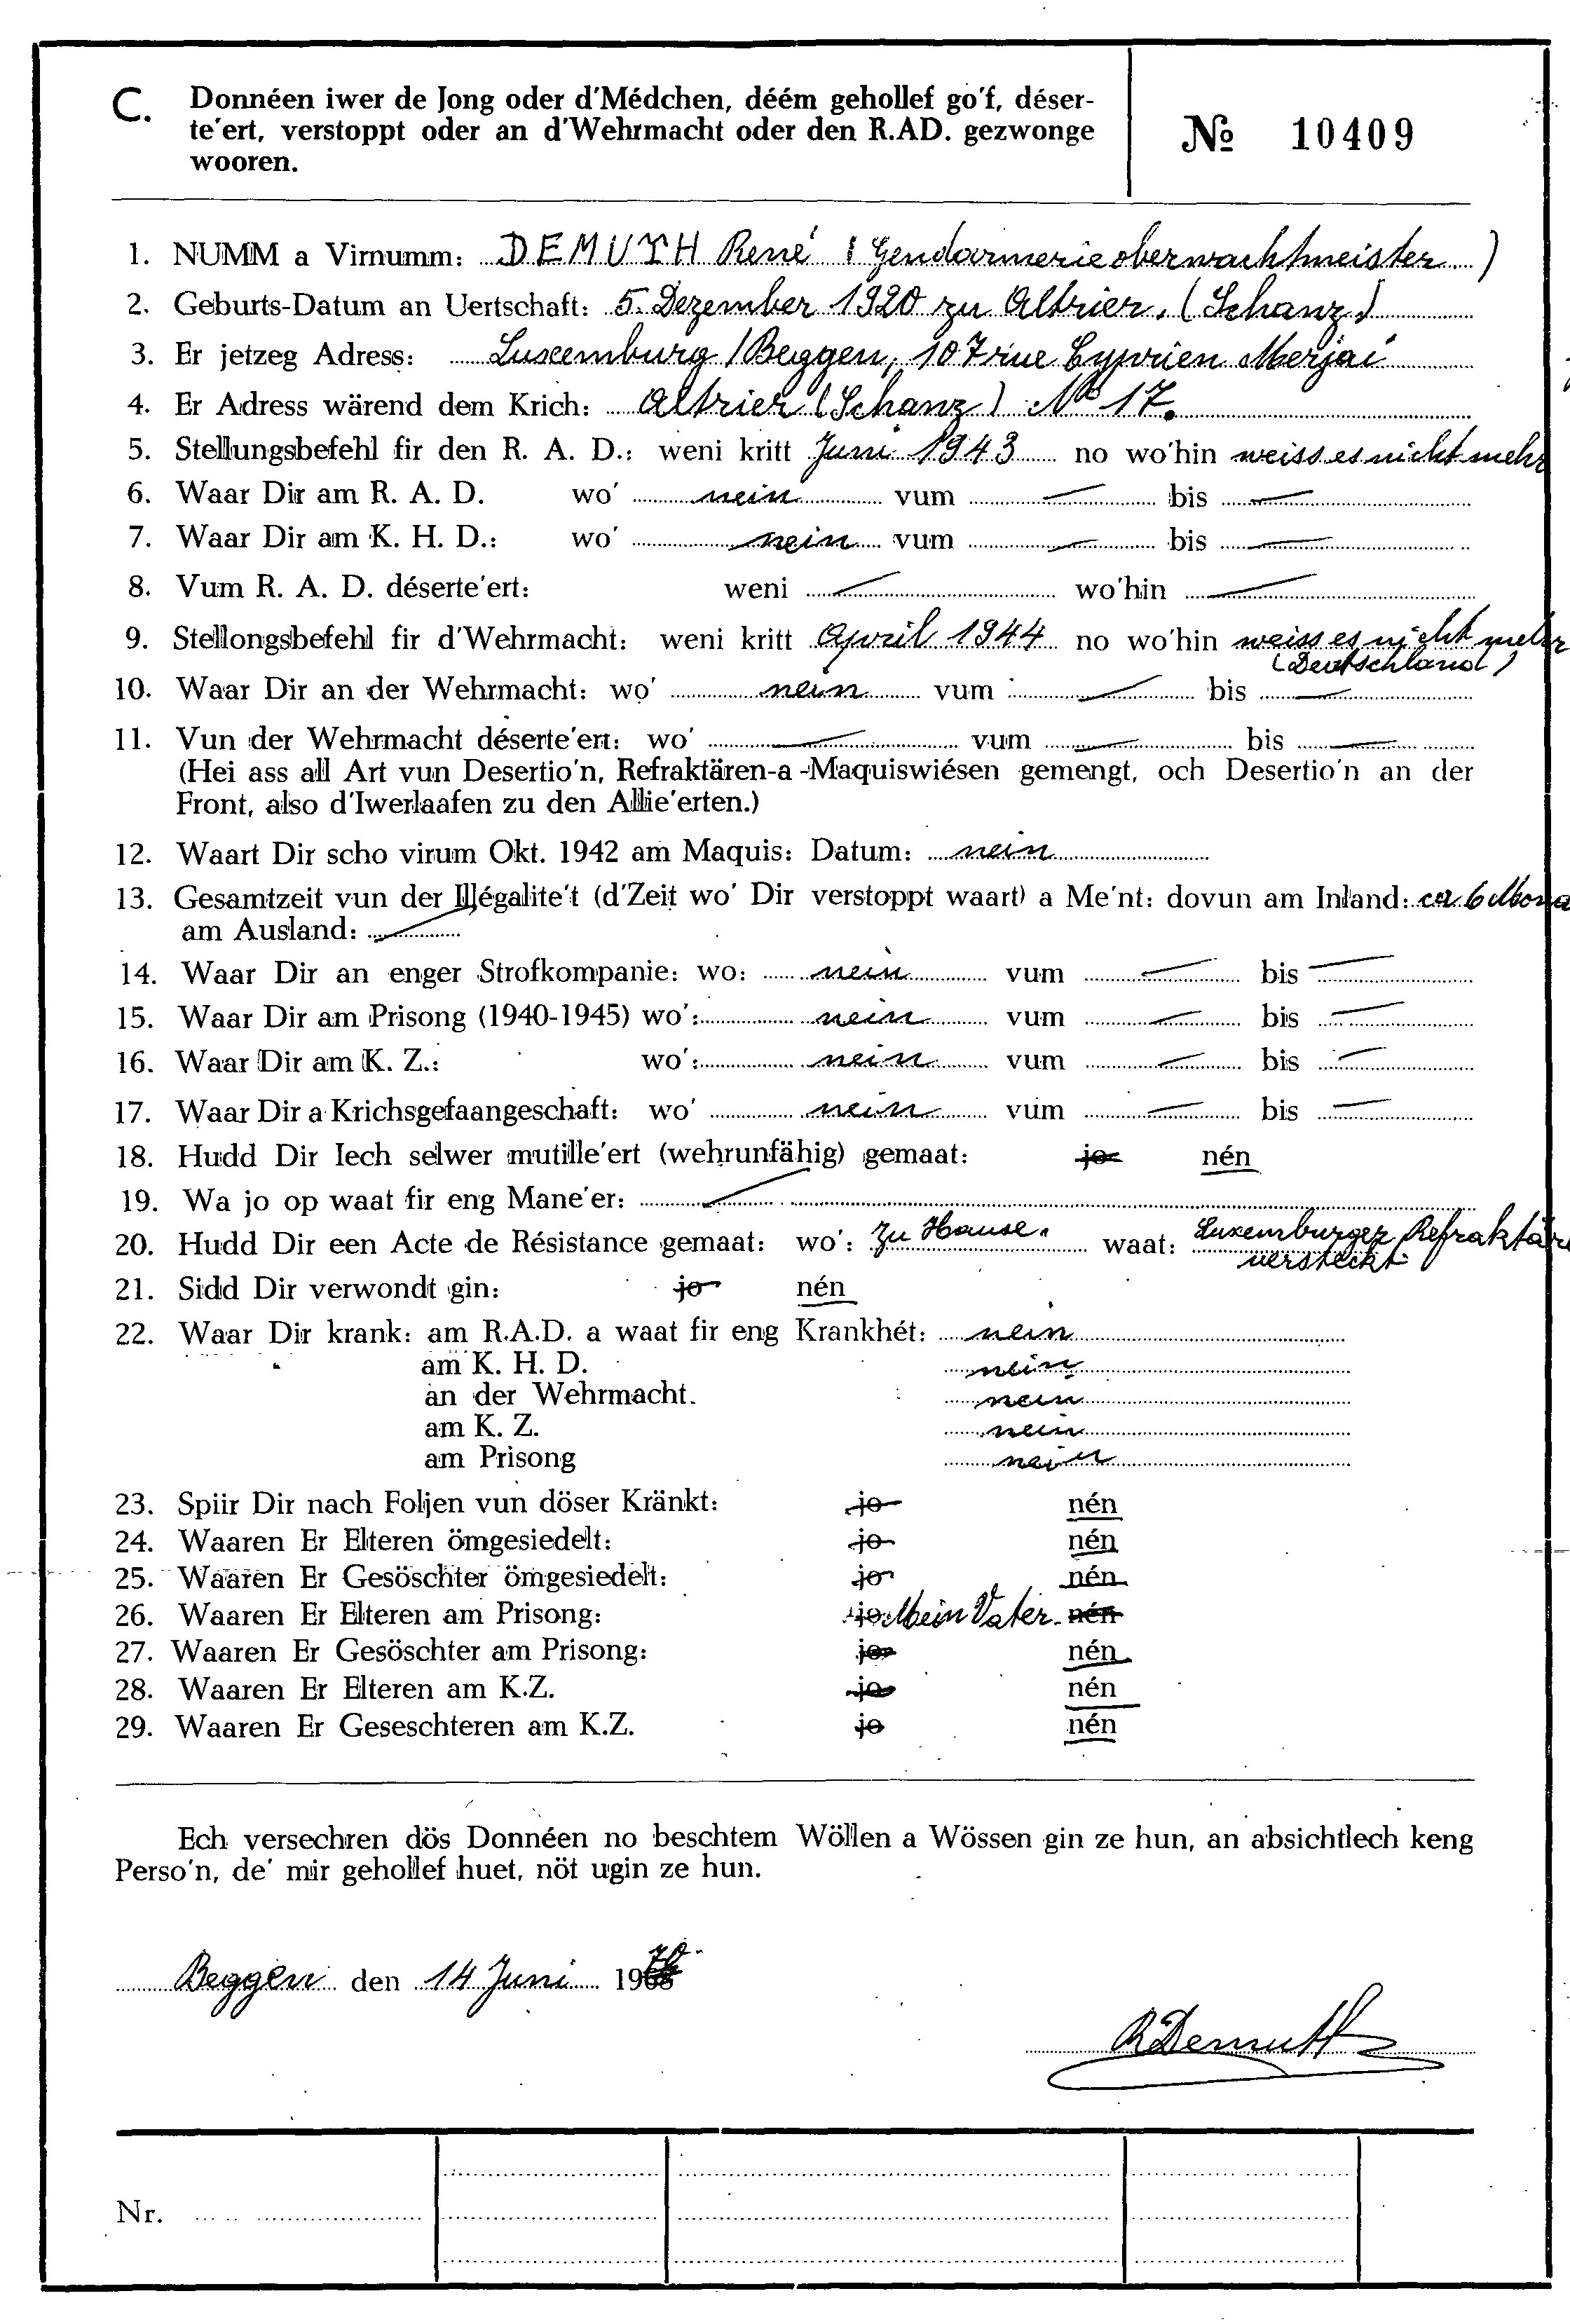 C. Donnéen iwer de Jong oder d'Médchen, déém gehollef go'f, déser-
te'ert, verstoppt oder an d'Wehrmacht oder den R.AD. gezwonge
wooren.
№ 10409
1. NUMM a Virnumm: DEMUTH René ( Gendarmerieoberwachtmeister )
2. Geburts-Datum an Uertschaft: 5. Dezember 1920 zu Altrier. (Schanz)
3. Er jetzeg Adress: Luxemburg / Beggen, 107 rue Cyprien Merjai
4. Er Adress wärend dem Krich: Altrier (Schanz) No 17.
5. Stellungsbefehl fir den R. A. D.: weni kritt Juni 1943 no wo'hin weiss es nicht mehr
6. Waar Dir am R. A. D. wo' nein vum — bis —
7. Waar Dir am K. H. D.: wo' nein vum — bis —
8. Vum R. A. D. déserte'ert: weni — wo'hin —
9. Stellongsbefehl fir d'Wehrmacht: weni kritt April 1944 no wo'hin weiss es nicht mehr
(Deutschland)
10. Waar Dir an der Wehrmacht: wo' nein vum — bis —
11. Vun der Wehrmacht déserte'ert: wo' — vum — bis —
(Hei ass all Art vun Desertio'n, Refraktären-a-Maquiswiésen gemengt, och Desertio'n an der
Front, also d'Iwerlaafen zu den Allie'erten.)
12. Waart Dir scho virum Okt. 1942 am Maquis: Datum: nein
13. Gesamtzeit vun der Illégalite't (d'Zeit wo' Dir verstoppt waart) a Me'nt: dovun am Inland: ca 6 Mona
am Ausland: —
14. Waar Dir an enger Strofkompanie: wo: nein vum — bis —
15. Waar Dir am Prisong (1940-1945) wo': nein vum — bis —
16. Waar Dir am K. Z.: wo': nein vum — bis —
17. Waar Dir a Krichsgefaangeschaft: wo' nein vum — bis —
18. Hudd Dir Iech selwer mutille'ert (wehrunfähig) gemaat: jo nén
19. Wa jo op waat fir eng Mane'er: —
20. Hudd Dir een Acte de Résistance gemaat: wo': Zu Hause. waat: Luxemburger Refraktäre
versteckt
21. Sidd Dir verwondt gin: jo nén
22. Waar Dir krank: am R.A.D. a waat fir eng Krankhét: nein
am K. H. D. nein
an der Wehrmacht. nein
am K. Z. nein
am Prisong nein
23. Spiir Dir nach Foljen vun döser Kränkt: jo nén
24. Waaren Er Elteren ömgesiedelt: jo nén
25. Waaren Er Gesöschter ömgesiedelt: jo nén
26. Waaren Er Elteren am Prisong: jo Mein Vater nén
27. Waaren Er Gesöschter am Prisong: jo nén
28. Waaren Er Elteren am K.Z. jo nén
29. Waaren Er Geseschteren am K.Z. jo nén
Ech versechren dös Donnéen no beschtem Wöllen a Wössen gin ze hun, an absichtlech keng
Perso'n, de' mir gehollef huet, nöt ugin ze hun.
Beggen den 14 Juni 1970
RDemuth
Nr.